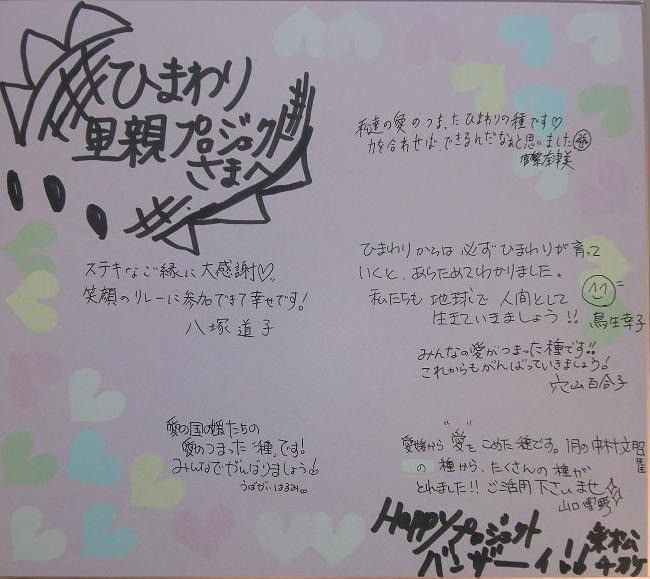 ひまわり
里親プロジェクト
さまへ
私達の愛のつまったひまわりの種です♡
力を合わせば、できるんだなぁと思いました
奈津美
ステキなご縁に大感謝♡
笑顔のリレーに参加できて幸せです!
八塚道子
ひまわりからは必ずひまわりが育って
いくと、あらためてわかりました。
私たちも地球で人間として
生きていきましょう!!
鳥生幸子
みんなの愛がつまった種です!!
これからもがんばっていきましょう!
穴山百合子
愛の国の媛たちの
愛のつまった"種"です!
みんなでがんばりましょう
うばがいはるみ
愛媛から"愛"をこめた種です。1月の中村文昭
の種から、たくさんの種が
とれました!!ご活用下さいませ
山口
Happyプロジェクト
バンザーイ!!